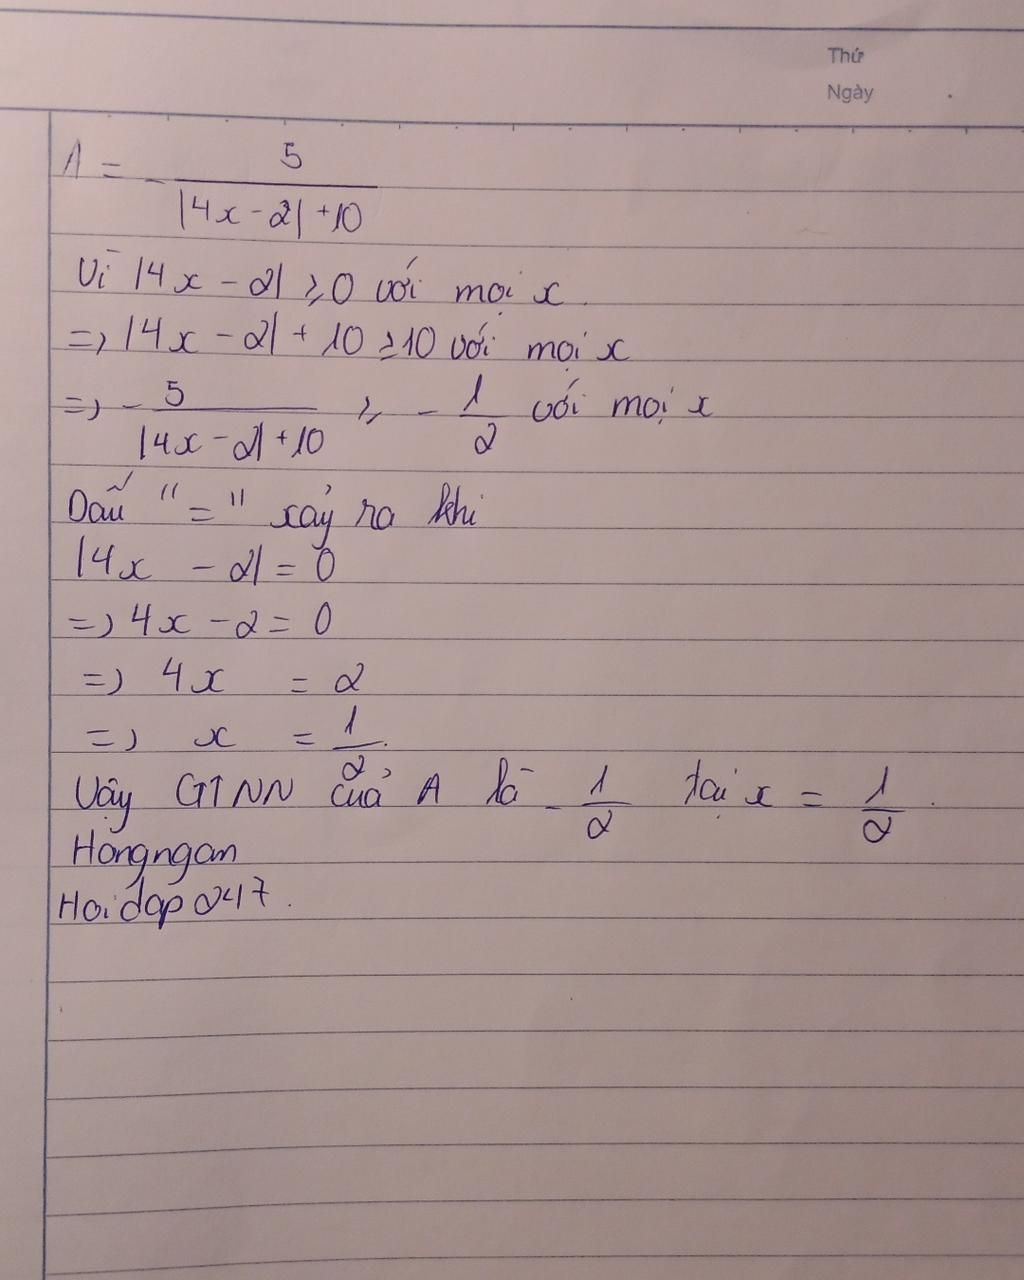 Thứ
Ngày
A = - 5 / (|4x - 2| + 10)
Vì |4x - 2| ≥ 0 với mọi x.
=> |4x - 2| + 10 ≥ 10 với mọi x
=> - 5 / (|4x - 2| + 10) ≥ - 1/2 với mọi x
Dấu "=" xảy ra khi
|4x - 2| = 0
=> 4x - 2 = 0
=> 4x = 2
=> x = 1/2.
Vậy GTNN của A là - 1/2 tại x = 1/2.
Hongngan
Hoidap247.